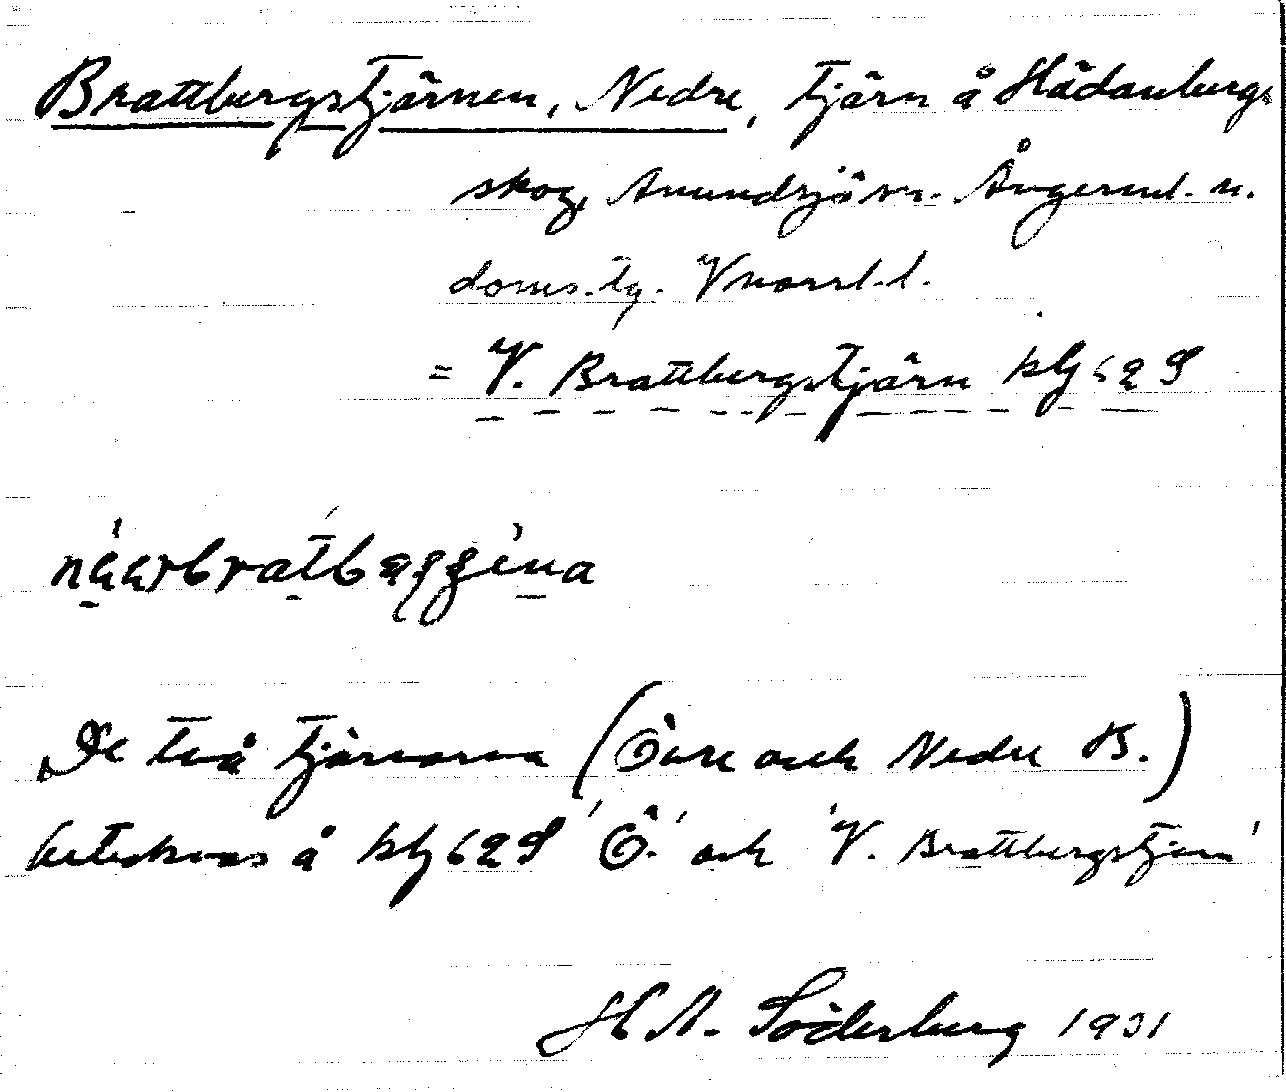 Brattbergstjärnen, Nedre, tjärn å Hädanbergs
skog, Anundsjö sn. Ångerml. n.
doms.lg. Vnorrl.l.
= V. Brattbergstjärn kbl 62 S

De två tjärnarna (Övre och Nedre B.)
betecknas å kbl 62 S 'Ö.' och 'V. Brattbergstjärn'
H N. Söderberg 1931